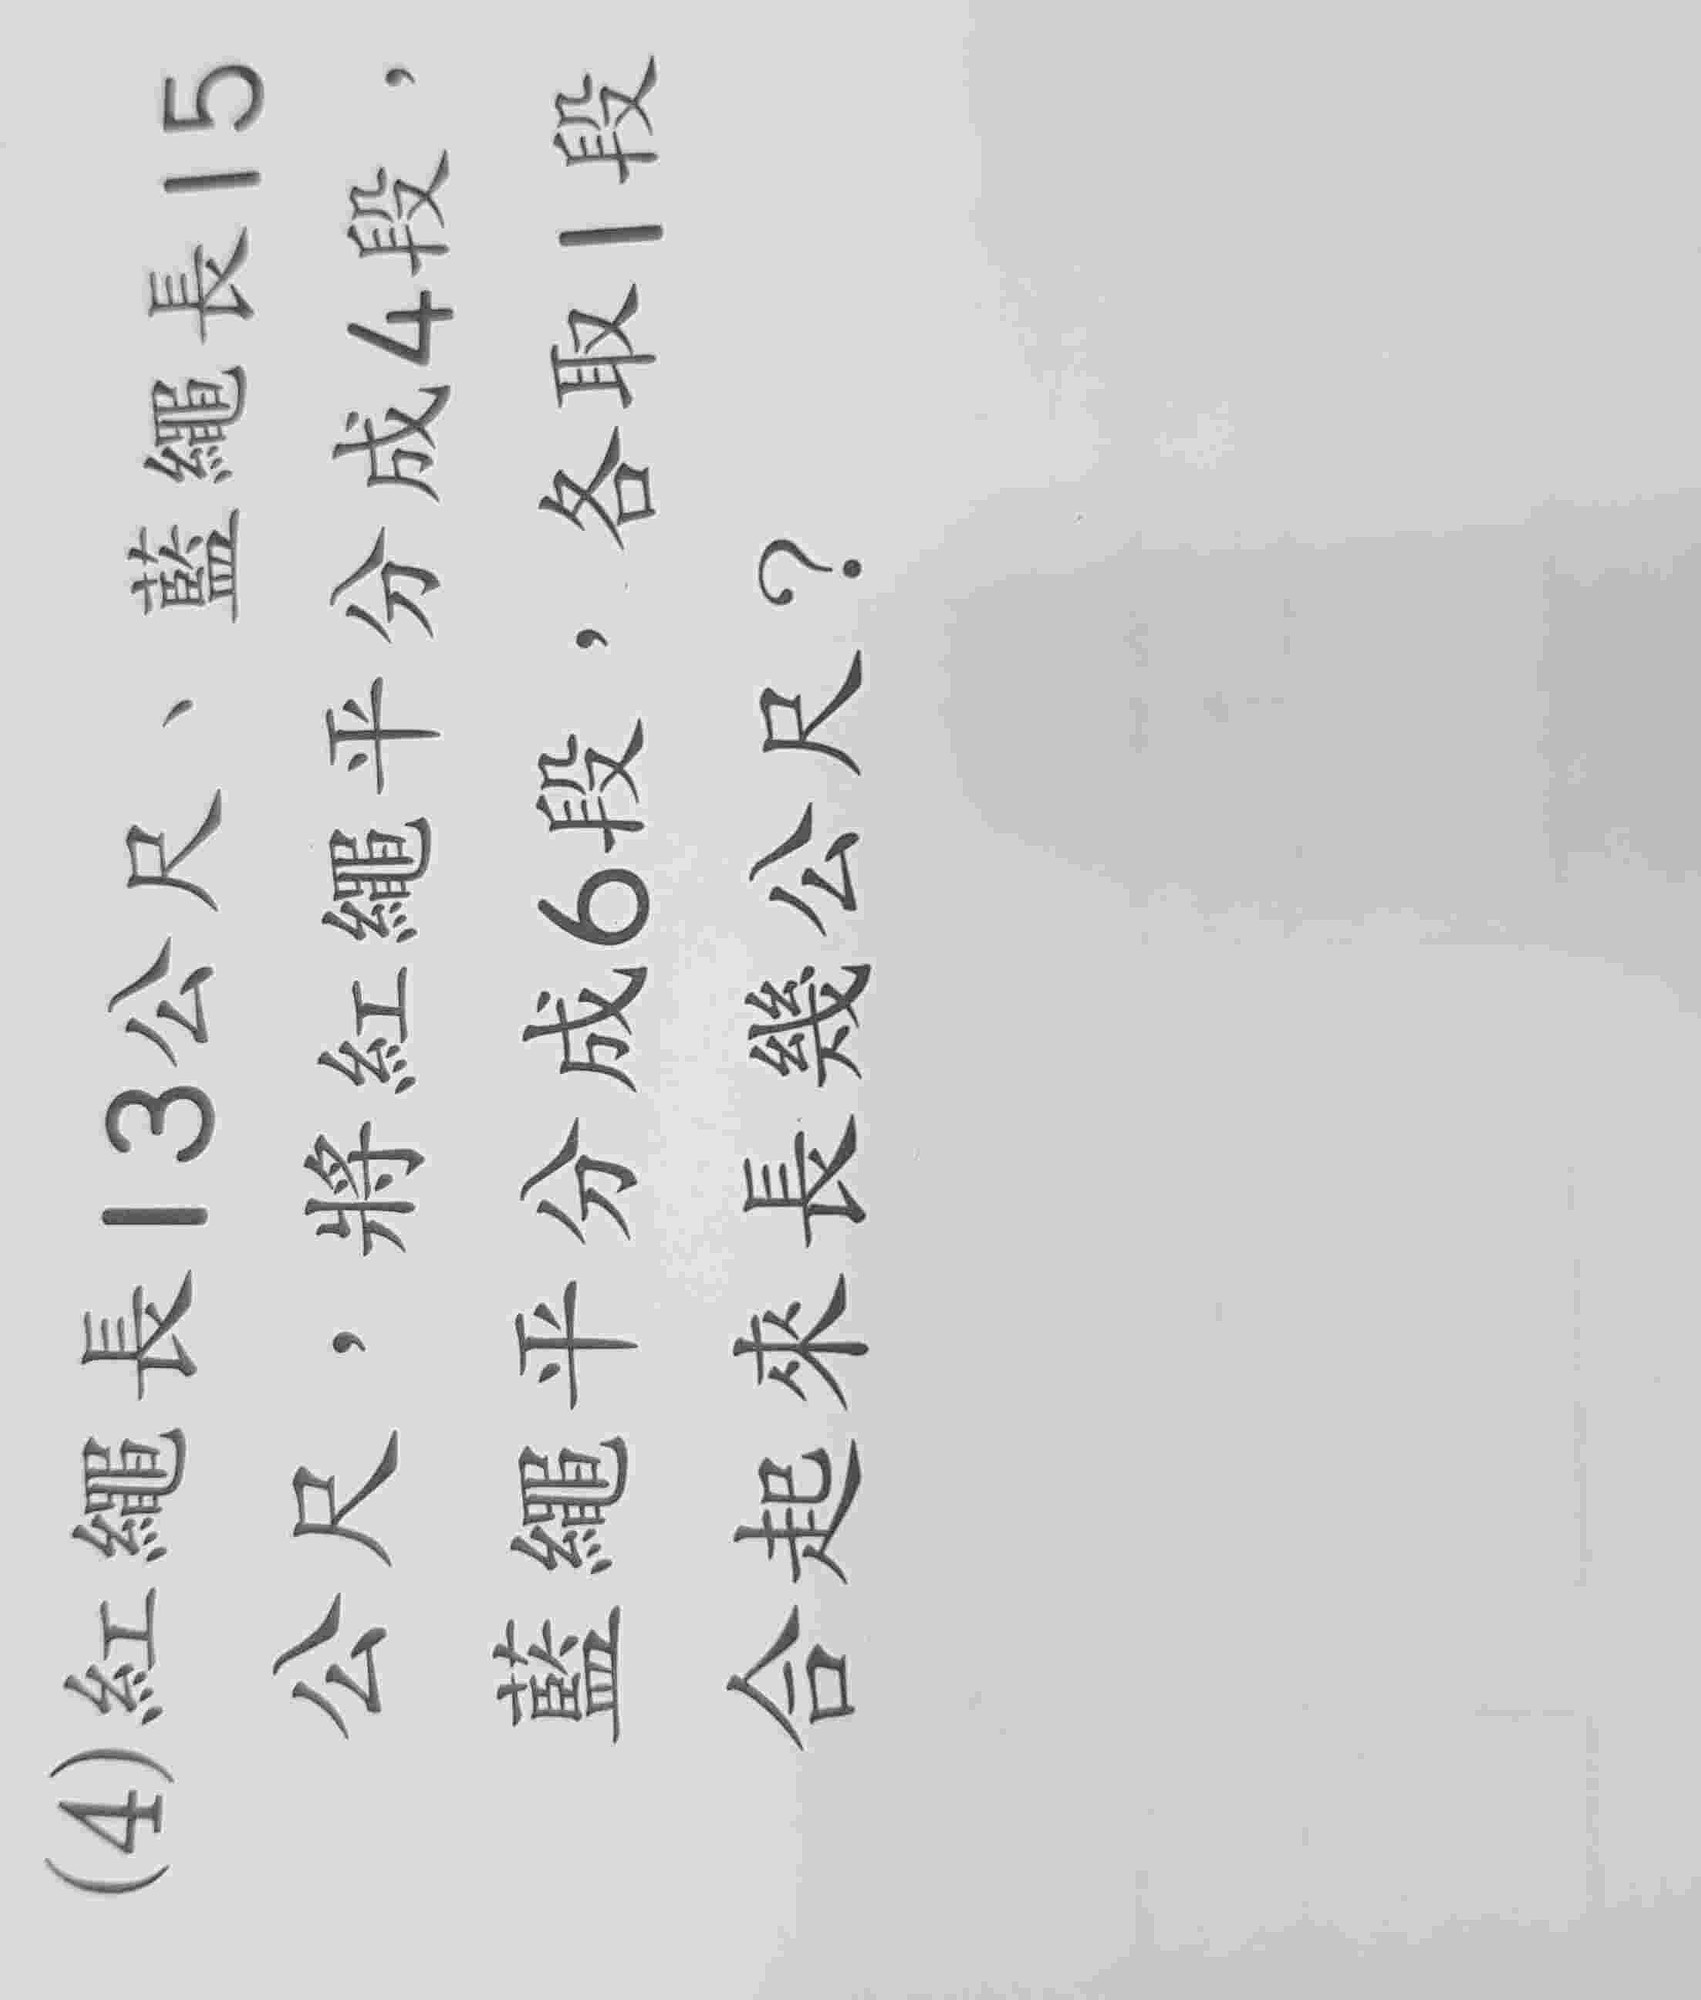 (4)紅繩長13公尺、藍繩長15
公尺，將紅繩平分成4段，
藍繩平分成6段，各取1段
合起來長幾公尺？